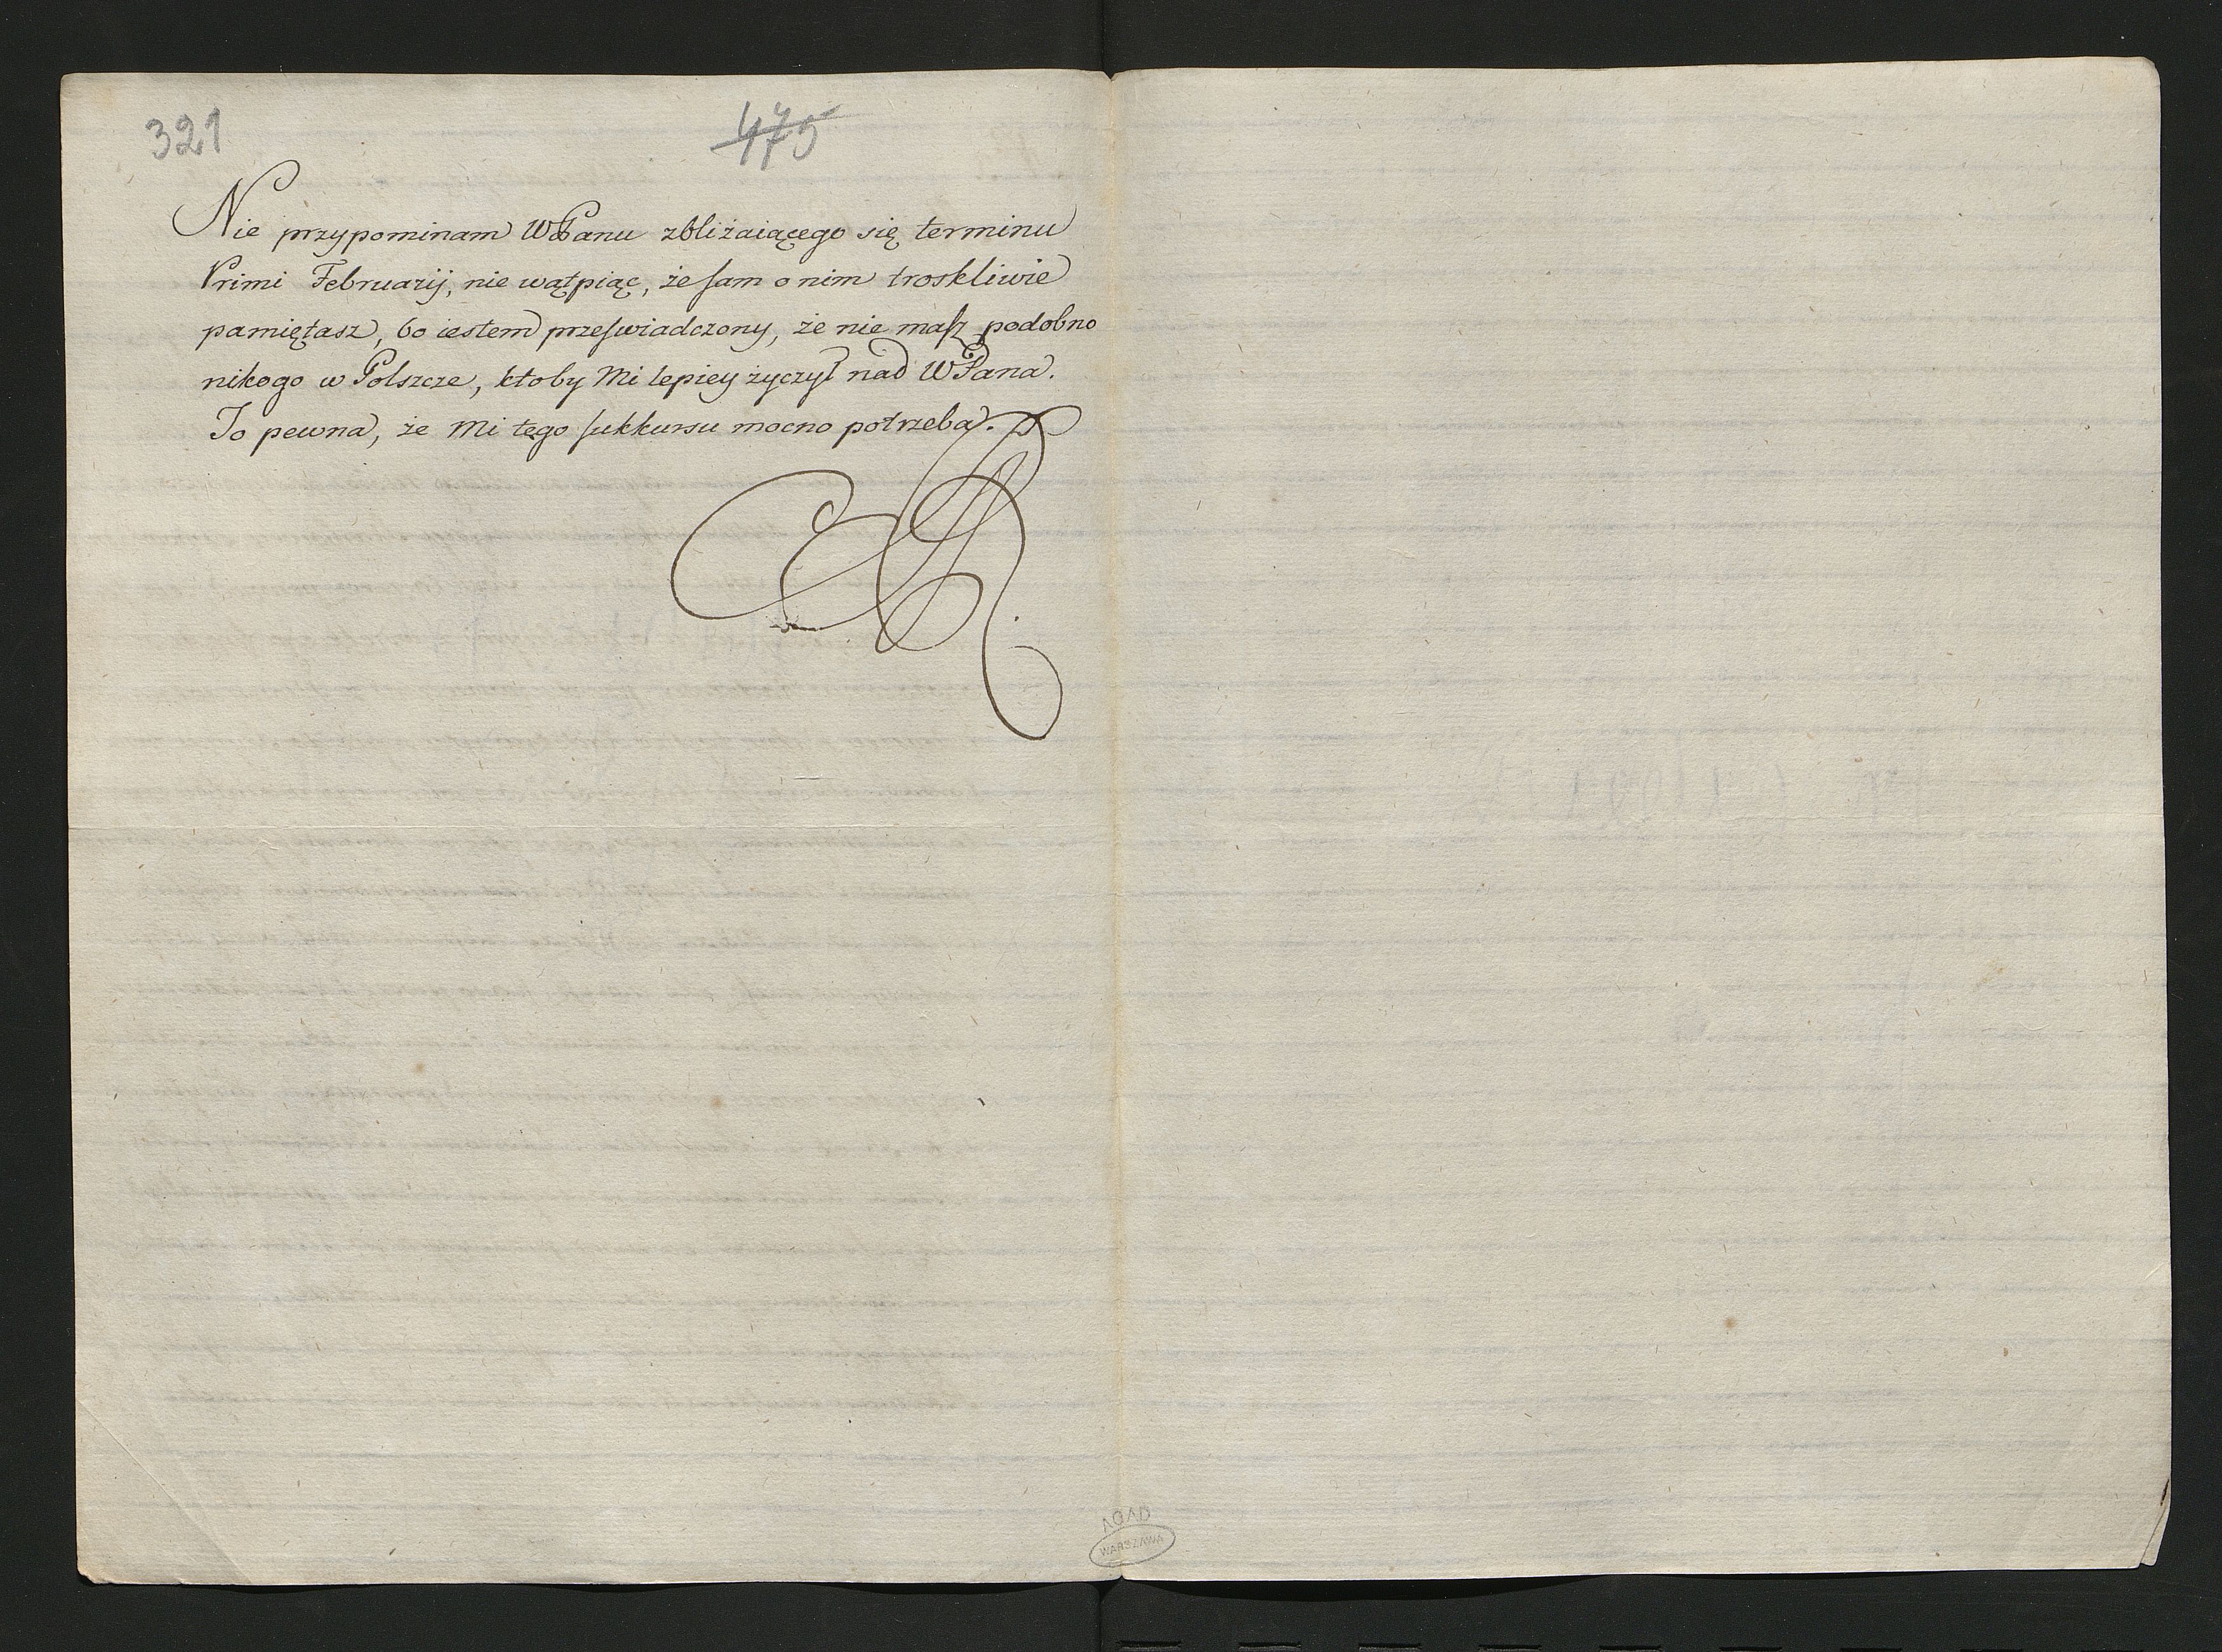 321
475
Nie przypominam WPanu zbliżaiącego się terminu
Primi Februarij, nie wątpiąc, że ſam o nim troskliwie
pamiętasz, bo iestem przeſwiadczony, że nie maſz podobno
nikogo w Polszcze, ktoby Mi lepiey życzył nad WPana.
To pewna, że Mi tego ſukkursu mocno potrzeba.
AGAD
WARSZAWA